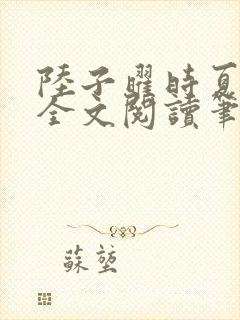 陸子曜時夏
全文閱讀筆
蘇堃